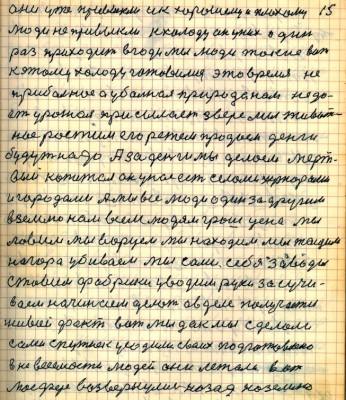 они уже привыкли и к хорошему и плохому 15
люди не привыкли к холоду он у них один
раз приходит в году мы люди тоже вот
к этому холоду готовимся это время не
прибыльное а убыльная природа нам не до
ет урожая присылает звере мы живот
ное ростим его режем продаем денги
будут на до А за денги мы делаем мерт
вый копитал окупа ест селами хуторами
и городами А мы все люди один за другим
в землю нам всем людям грош цена мы
ловим мы воруем мы находим мы тащим
на гора убиваем мы сами себя заводы
ставим фабрики уводим руки засучи
ваем начинаем делат в деле получаеться
живый факт вот мы да к мы сделали
сами спутник уводили своих подготовлено
в не весемость людей они летали в ат
мосфере возвернулись назад на землю